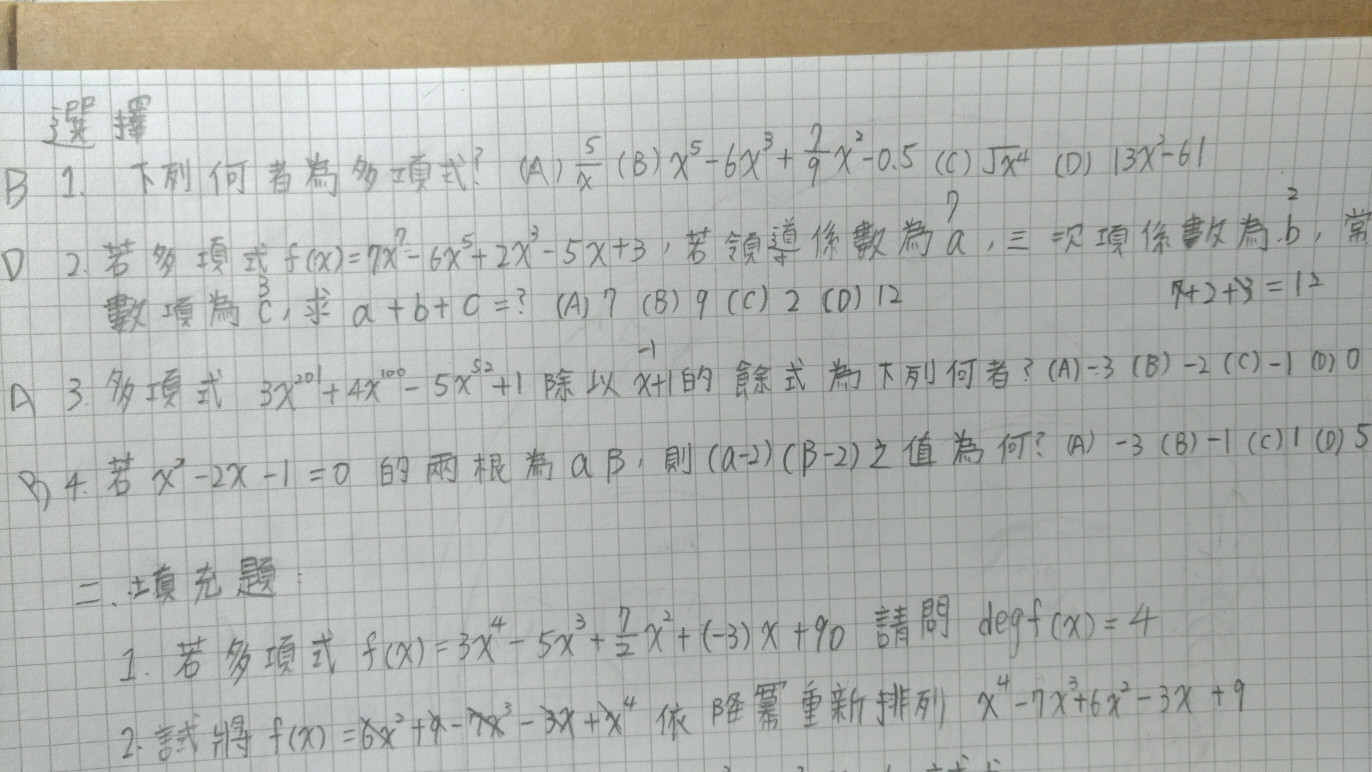 選擇
B 1. 下列何者為多項式? (A) 5/x (B) x⁵-6x³+7/9x²-0.5 (C) √x⁴ (D) |3x²-6|
D 2. 若多項式 f(x)=7x⁷-6x⁵+2x³-5x+3, 若領導係數為a, 三次項係數為b, 常
7 2
數項為c, 求 a+b+c=? (A) 7 (B) 9 (C) 2 (D) 12 7+2+3=12
3
A 3. 多項式 3x²⁰¹+4x¹⁰⁰-5x⁵²+1 除以 x+1 的餘式為下列何者? (A)-3 (B)-2 (C)-1 (D) 0
-1
B 4. 若 x²-2x-1=0 的兩根為 α β, 則 (α-2)(β-2) 之值為何? (A) -3 (B) -1 (C) 1 (D) 5
二、填充題:
1. 若多項式 f(x)=3x⁴-5x³+7/2x²+(-3)x+90 請問 deg f(x)=4
2. 試將 f(x)=6x²+9-7x³-3x+x⁴ 依降冪重新排列 x⁴-7x³+6x²-3x+9